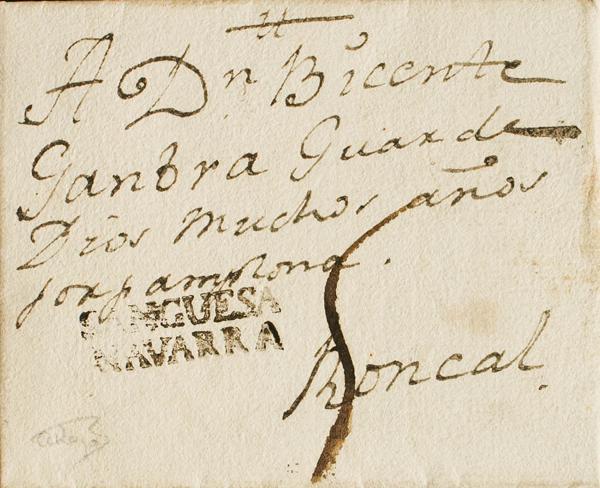 A Dn Bicente
Ganbra Guarde
Dios muchos años
por pamplona.
SANGUESA
NAVARRA
Roncal.